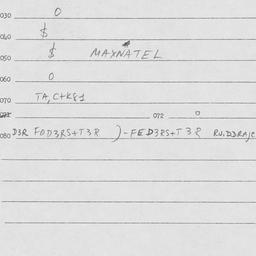 030 0
040 $
050 $ MAXNATEL
060 0
070 TA, C+K&1
072 0
080 D3R FOD3RS+T3R )-FED3RS+T3R RU.D3RAJC